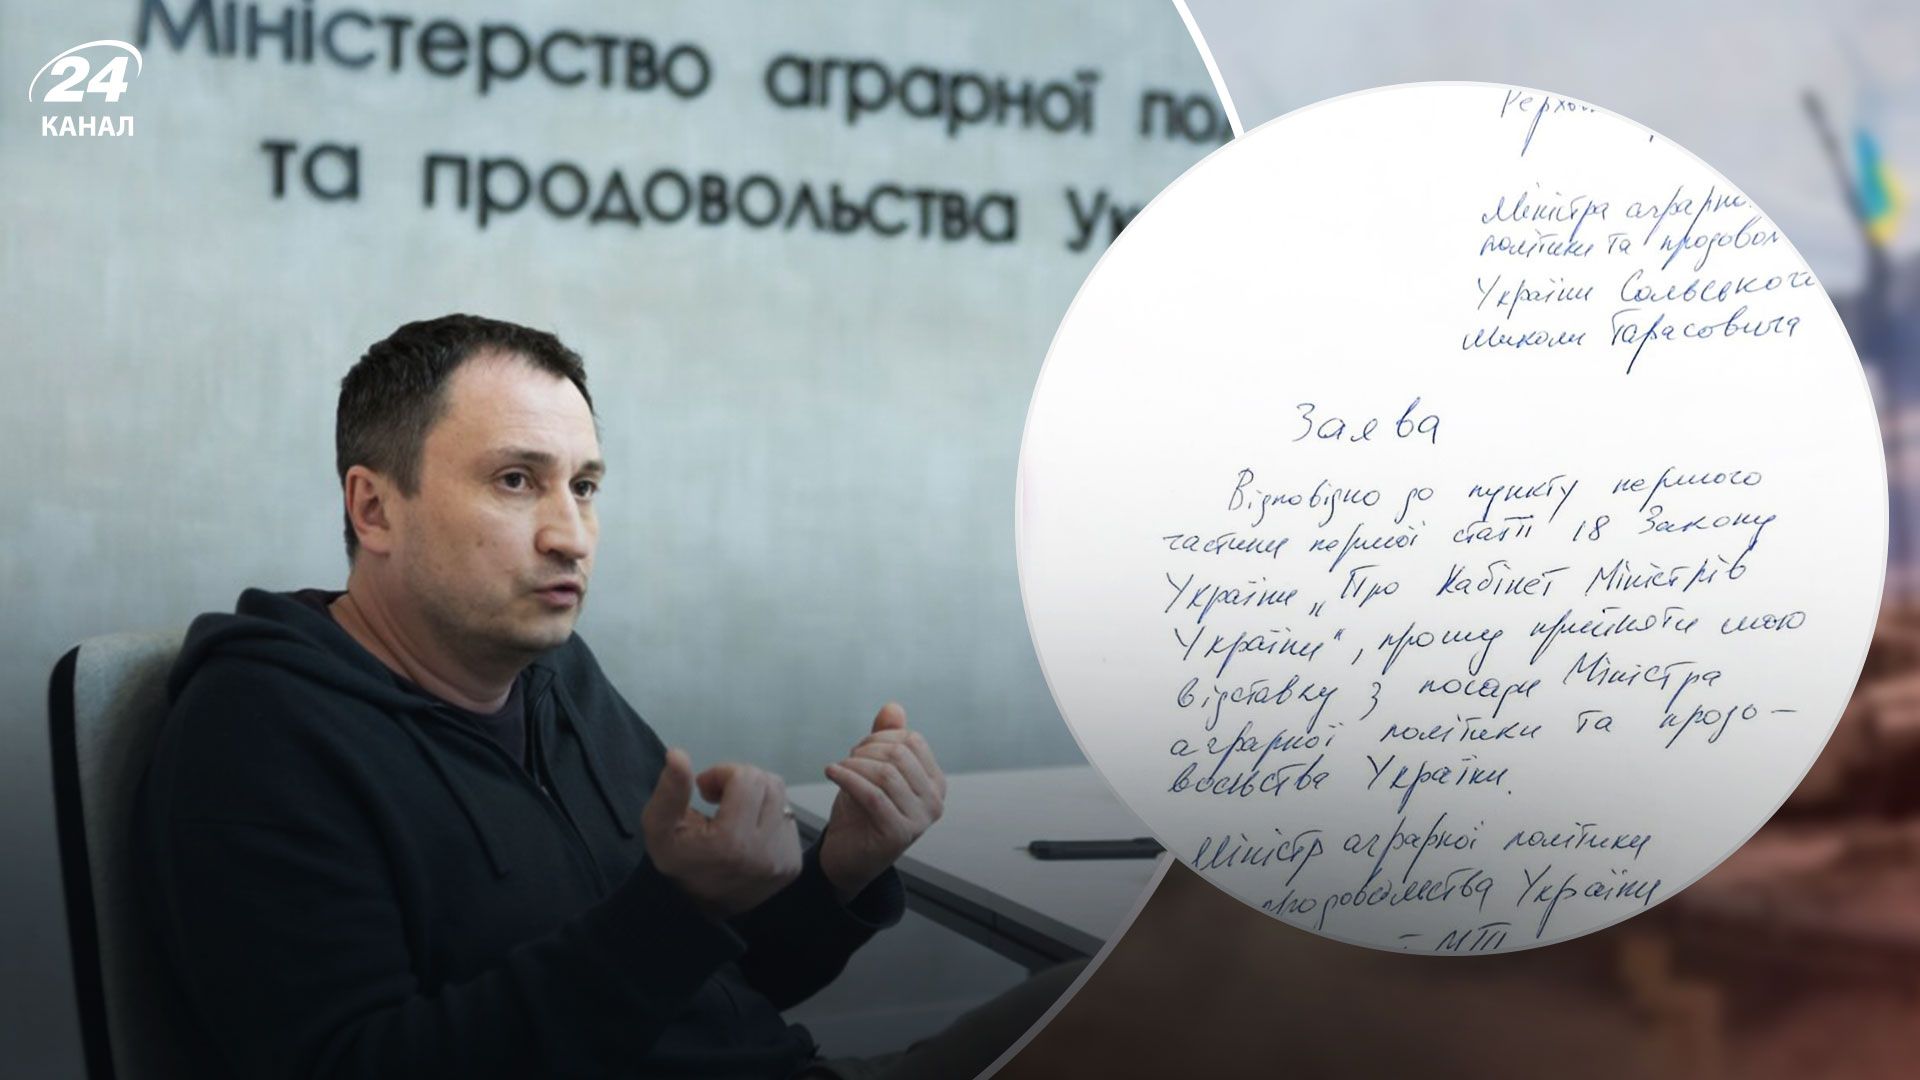 24
КАНАЛ
Міністерство аграрної пол
та продовольства Ук
Верхов
Міністра аграрно
політики та продовол
України Сольського
Миколи Тарасовича
Заява
Відповідно до пункту першого
частини першої статті 18 Закону
України „Про Кабінет Міністрів
України“, прошу прийняти мою
відставку з посади Міністра
аграрної політики та продо-
вольства України.
Міністр аграрної політики
продовольства України